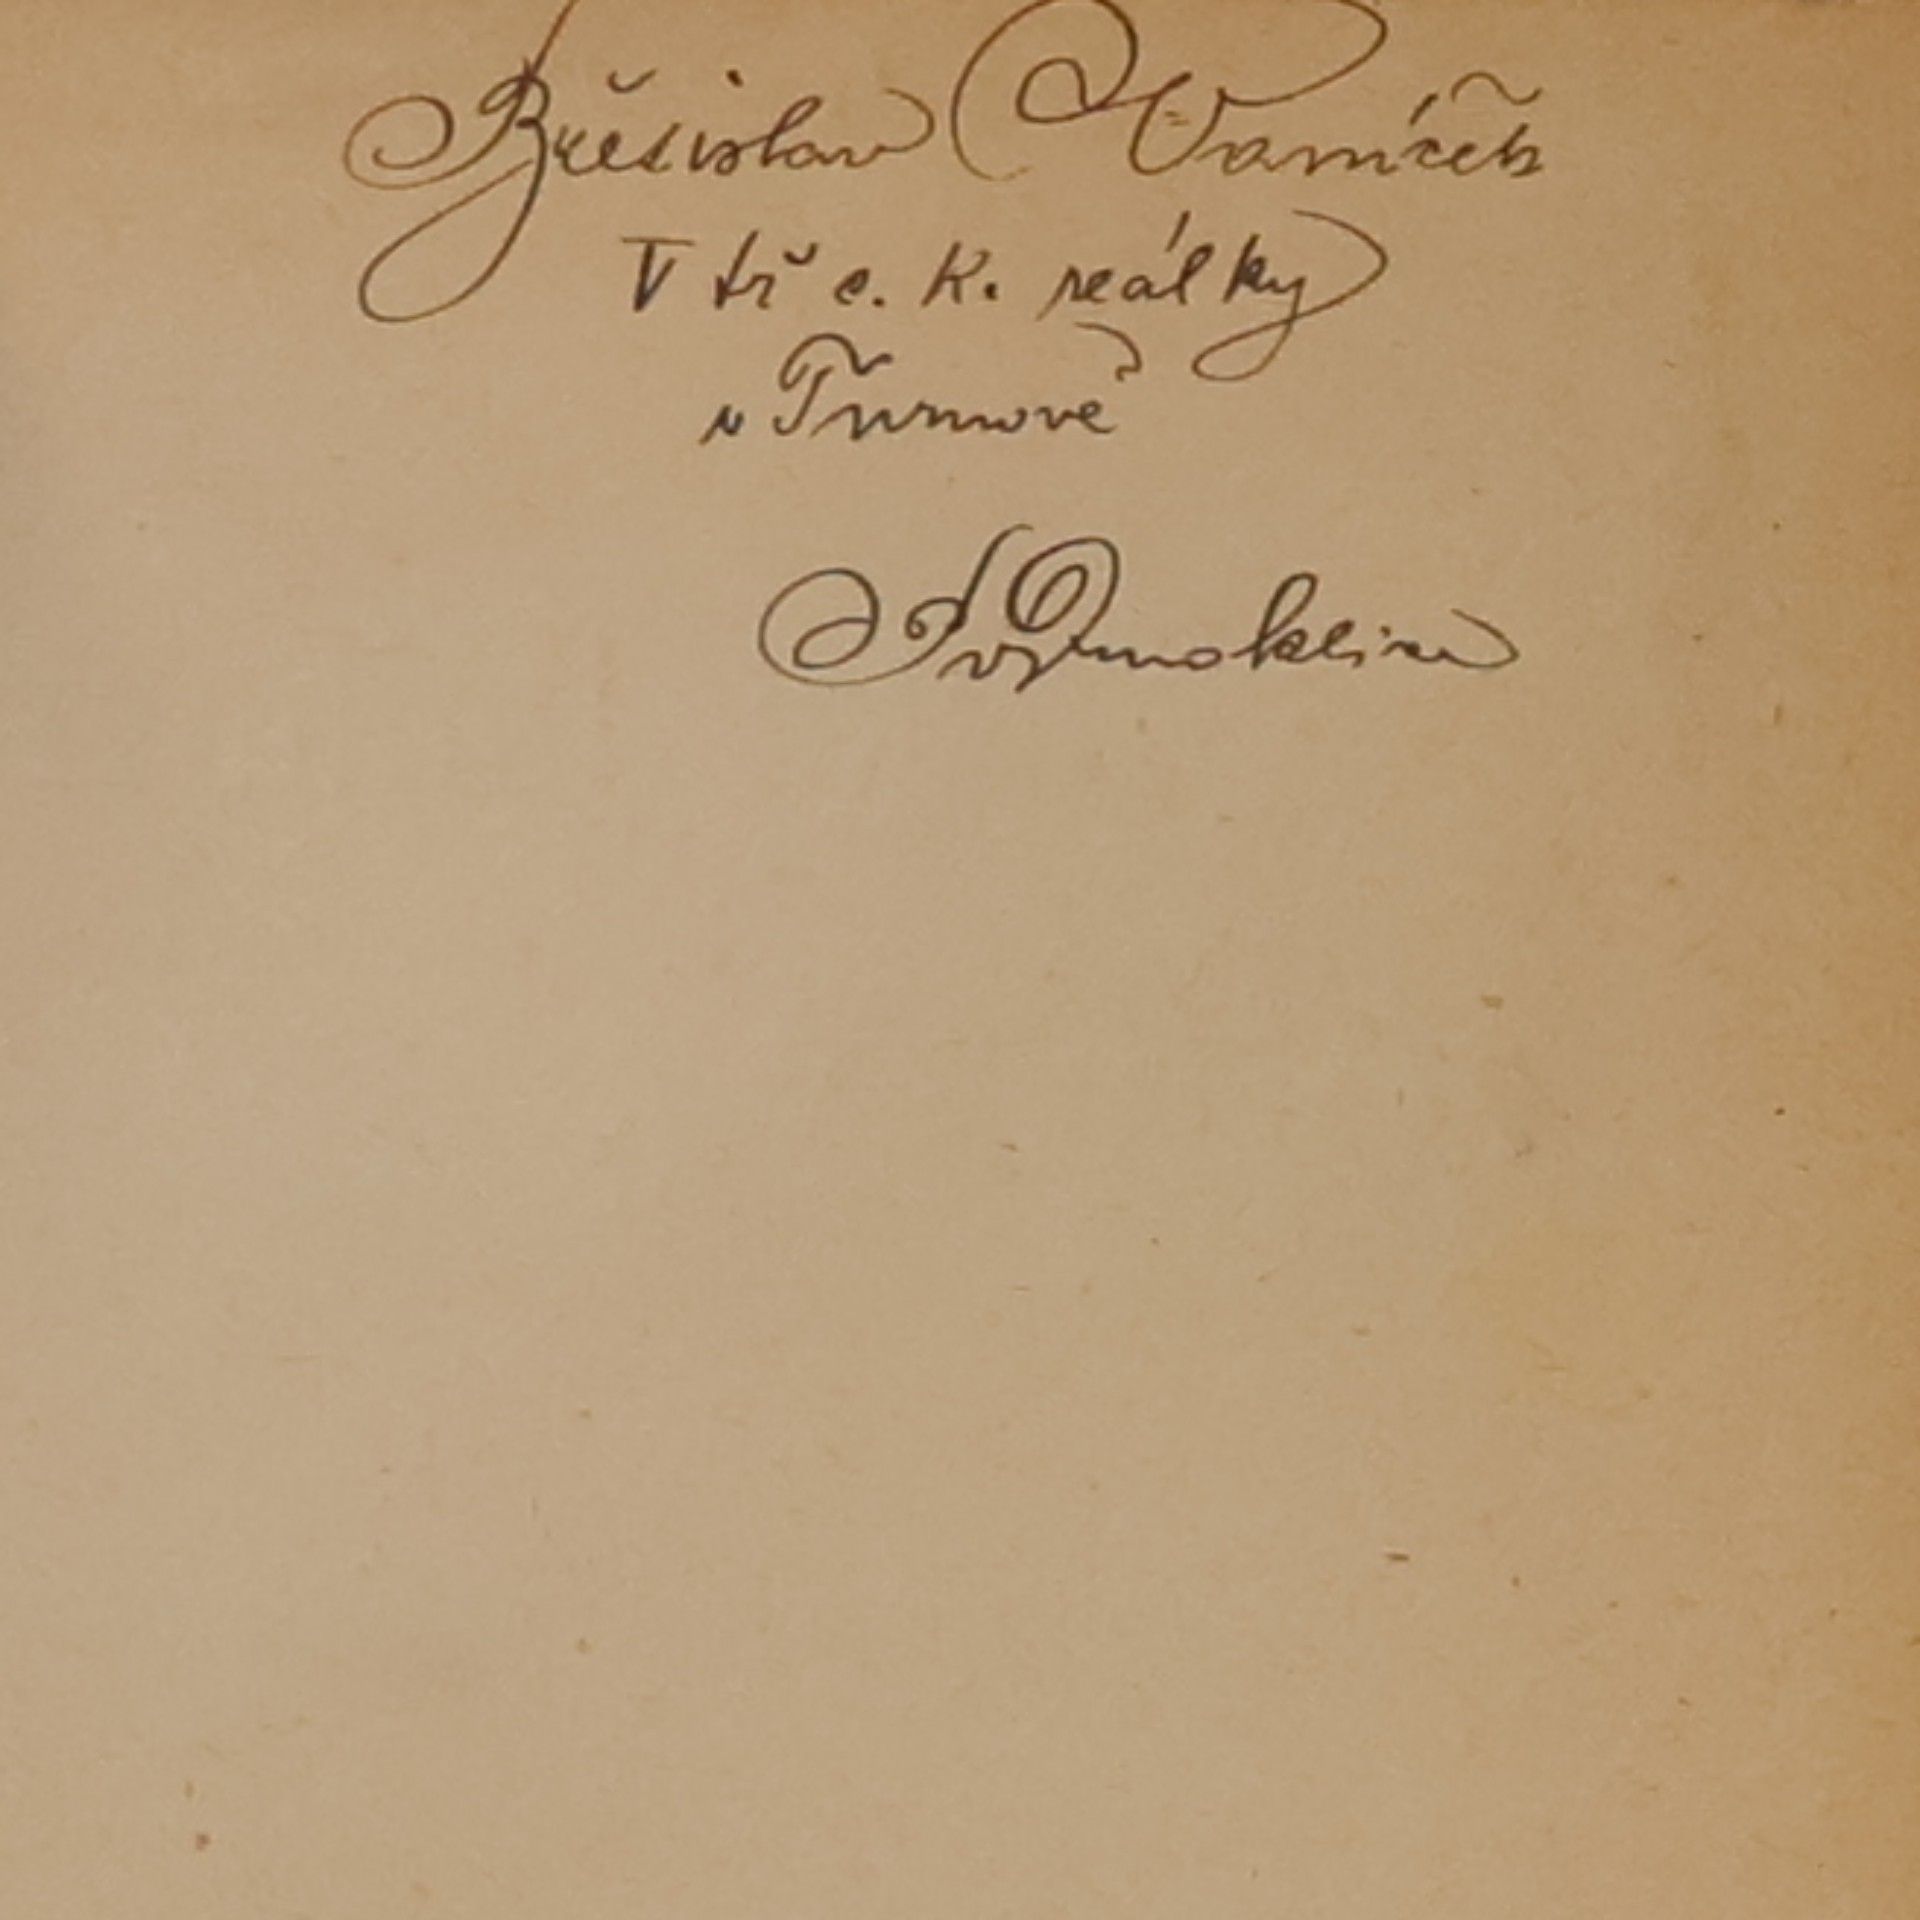 Břetislav Vaníček
V tř c. k. reálky
v Turnově